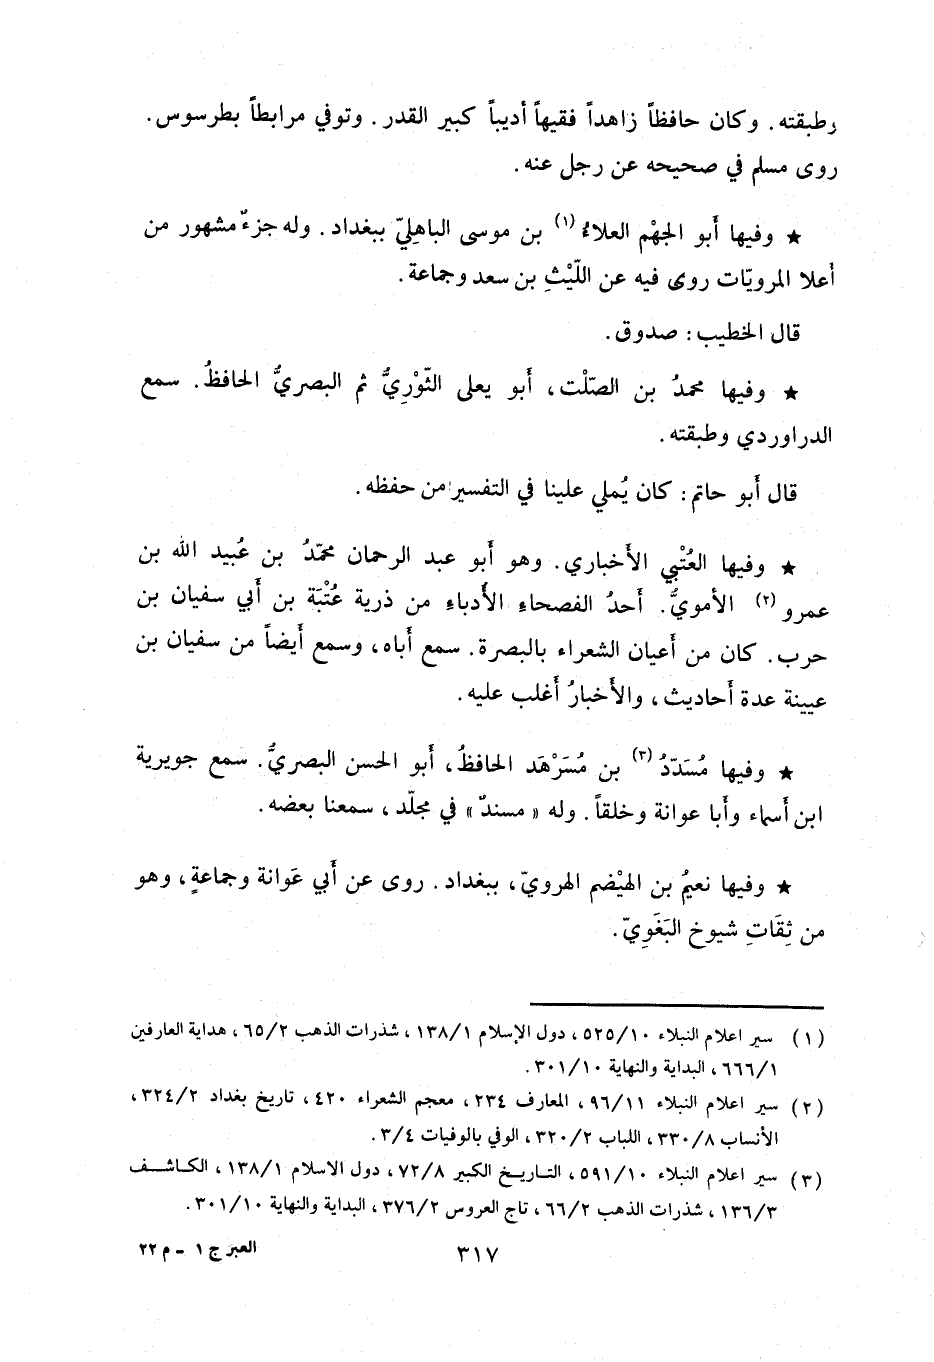 وطبقته. وكان حافظاً زاهداً فقيهاً أديباً كبير القدر. وتوفي مرابطاً بطرسوس.
روى مسلم في صحيحه عن رجل عنه.
★ وفيها أَبو الجهْم العلاءُ (١) بن موسى الباهِليّ ببغداد. وله جزءٌ مشهور من
أَعلا المرويّات روى فيه عن اللّيْثِ بن سعد وجماعة.
قال الخطيب: صدوق.
★ وفيها محمدُ بن الصّلْت، أَبو يعلى الثّوْرِيُّ ثم البصريُّ الحافظُ. سمع
الدراوردي وطبقته.
قال أَبو حاتم: كان يُملي علينا في التفسير من حفظه.
★ وفيها العُتْبي الأَخباري. وهو أَبو عبد الرحمان محمّدُ بن عُبيد الله بن
عمرو (٢) الأمويُّ. أَحدُ الفصحاء الأُدباء من ذرية عُتْبَة بن أَبي سفيان بن
حرب. كان من أَعيان الشعراء بالبصرة. سمع أَباه، وسمع أَيضاً من سفيان بن
عيينة عدة أَحاديث، والأَخبارُ أَغلب عليه.
★ وفيها مُسَدّدُ (٣) بن مُسَرْهَد الحافظُ، أَبو الحسن البصريُّ. سمع جويرية
ابن أَسماء وأَبا عوانة وخلقاً. وله « مسندٌ » في مجلّد، سمعنا بعضه.
★ وفيها نعيمُ بن الهيْضم الهرويّ، ببغداد. روى عن أَبي عَوانة وجماعةٍ، وهو
من ثِقَاتِ شيوخ البَغَوِيّ.
(١) سير اعلام النبلاء ٥٢٥/١٠، دول الإسلام ١٣٨/١، شذرات الذهب ٦٥/٢، هداية العارفين
٦٦٦/١، البداية والنهاية ٣٠١/١٠.
(٢) سير اعلام النبلاء ٩٦/١١، المعارف ٢٣٤، معجم الشعراء ٤٢٠، تاريخ بغداد ٣٢٤/٢،
الأنساب ٣٣٠/٨، اللباب ٣٢٠/٢، الوفي بالوفيات ٣/٤.
(٣) سير اعلام النبلاء ٥٩١/١٠، التاريخ الكبير ٧٢/٨، دول الاسلام ١٣٨/١، الكاشف
١٣٦/٣، شذرات الذهب ٦٦/٢، تاج العروس ٣٧٦/٢، البداية والنهاية ٣٠١/١٠.
٣١٧
العبر ج ١ - م ٢٢